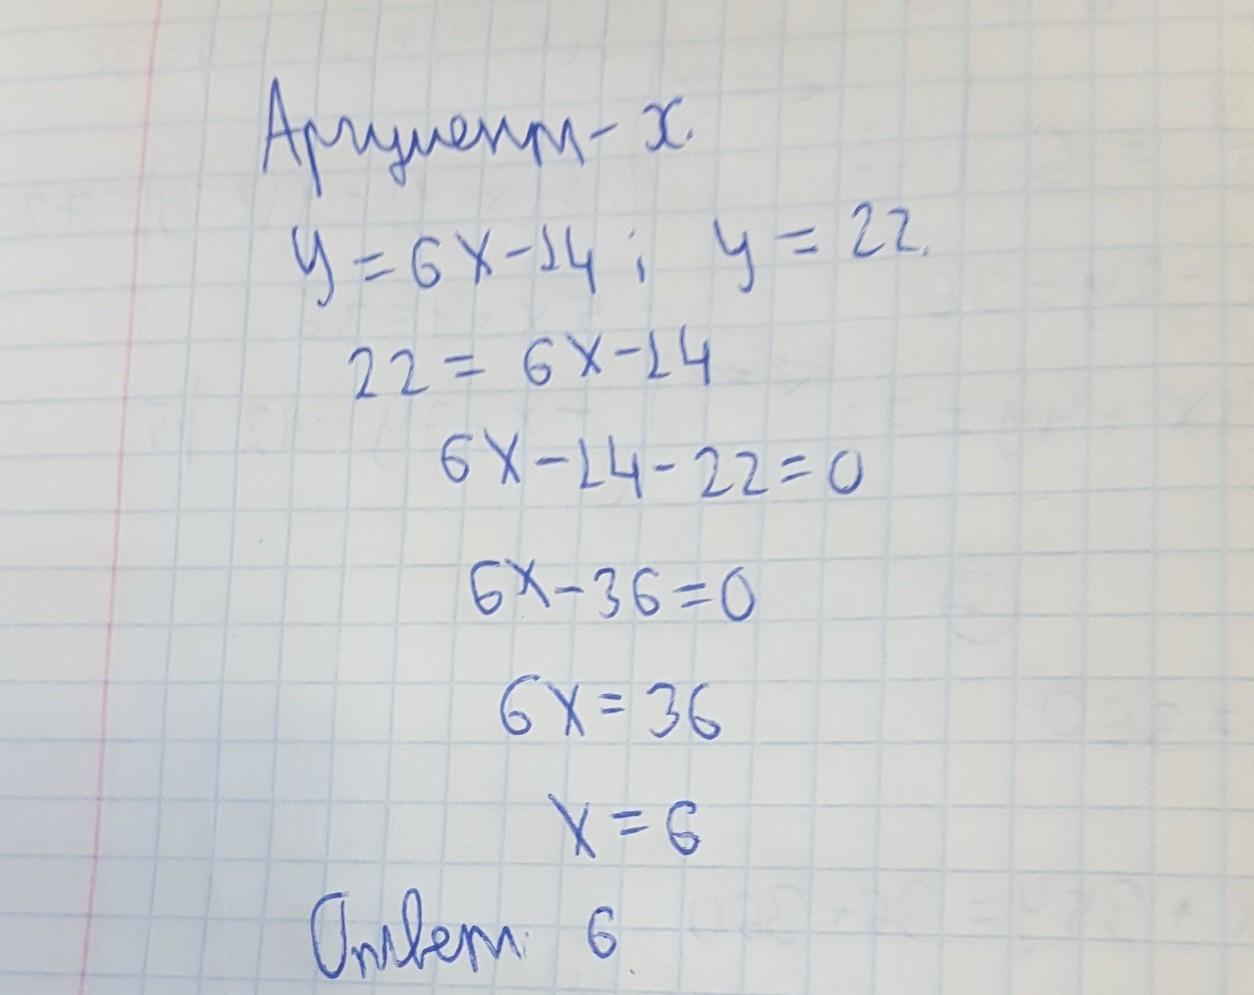 Аргумент - x.
y = 6x - 14 ; y = 22.
22 = 6x - 14
6x - 14 - 22 = 0
6x - 36 = 0
6x = 36
x = 6
Ответ: 6.